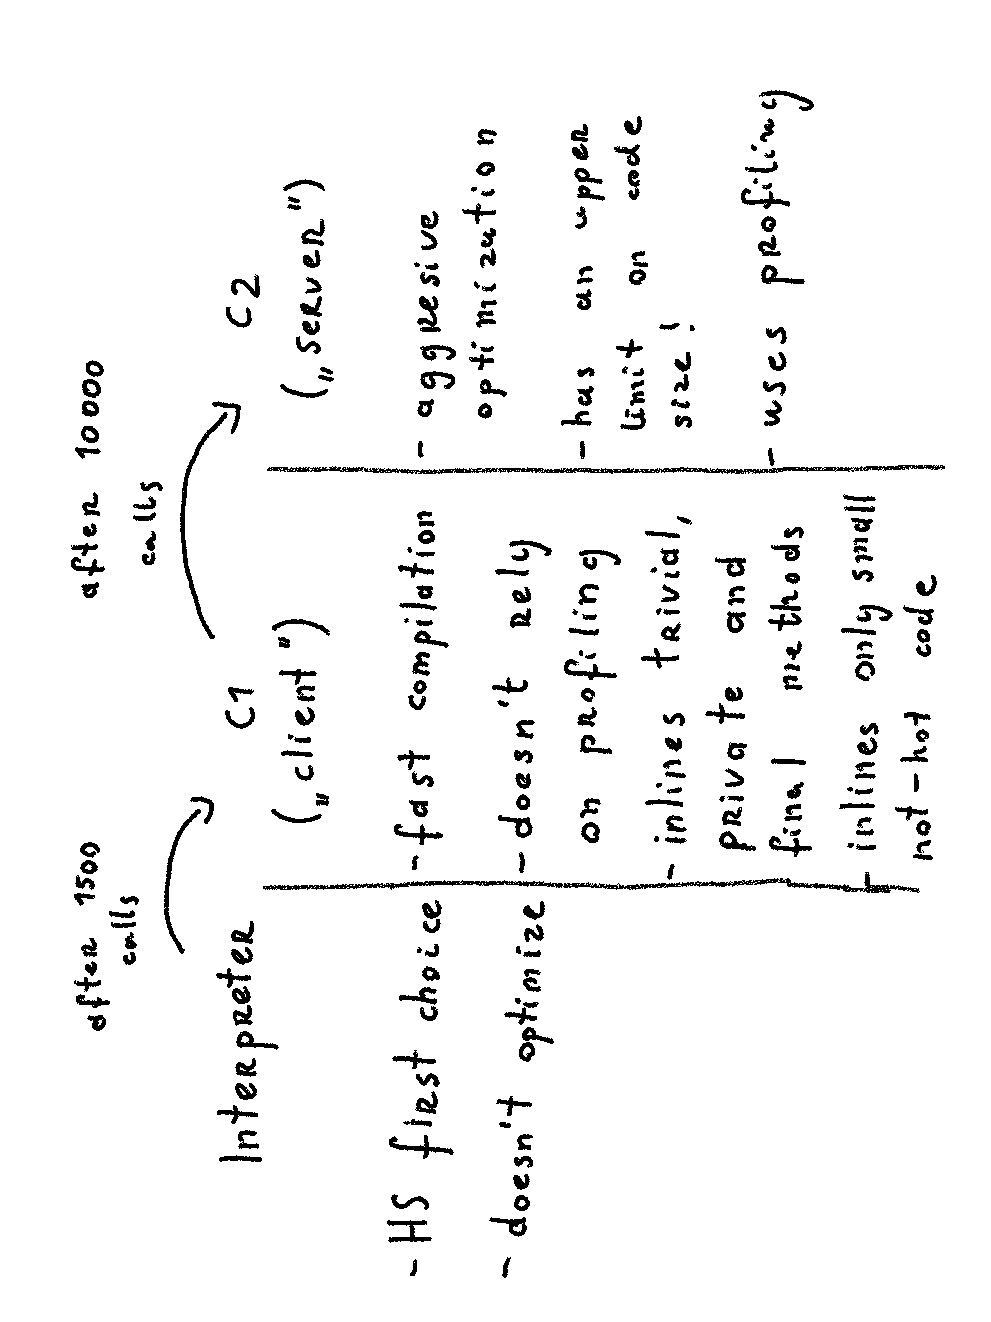 after 1500
calls
after 10000
calls
Interpreter
C1
(„client")
C2
(„server")
- HS first choice
- doesn't optimize
- fast compilation
- doesn't rely
on profiling
- inlines trivial,
private and
final methods
- inlines only small
not-hot code
- aggresive
optimization
- has an upper
limit on code
size!
- uses profiling